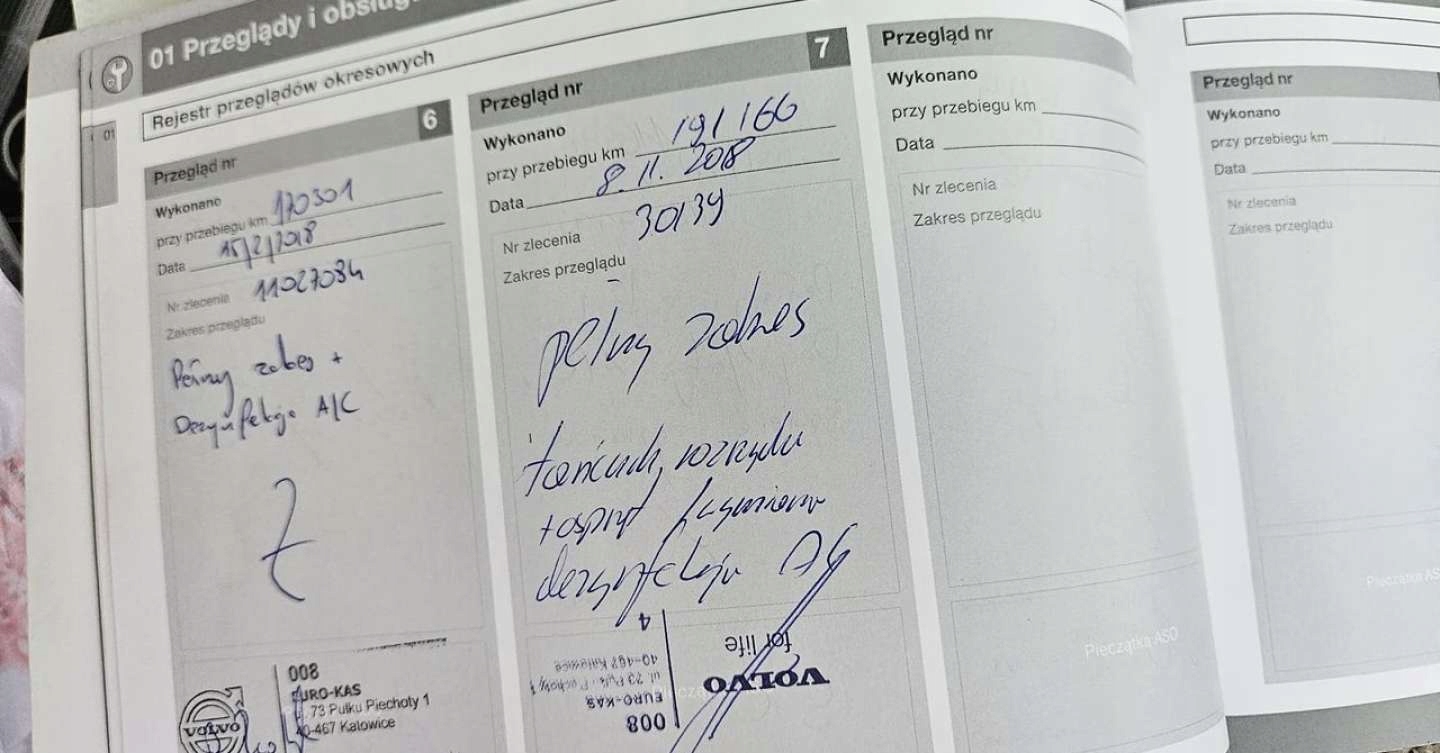 01 Przeglądy i obsług
Rejestr przeglądów okresowych
01
Przegląd nr 6
Wykonano
przy przebiegu km 170301
Data 15/2/2018
Nr zlecenia 11027084
Zakres przeglądu
Pełny zakres +
Dezynfekcja A/C
VOLVO
008
EURO-KAS
ul. 73 Pułku Piechoty 1
40-467 Katowice
Przegląd nr 7
Wykonano
przy przebiegu km 191166
Data 8.11.2018
Nr zlecenia 30139
Zakres przeglądu
pełny zakres
łańcuch rozrządu
+osprzęt
dezynfekcja
4
VOLVO
for life
008
EURO-KAS
ul. 73 Pułku Piechoty 1
40-467 Katowice
Przegląd nr
Wykonano
przy przebiegu km
Data
Nr zlecenia
Zakres przeglądu
Pieczątka ASO
Przegląd nr
Wykonano
przy przebiegu km
Data
Nr zlecenia
Zakres przeglądu
Pieczątka AS